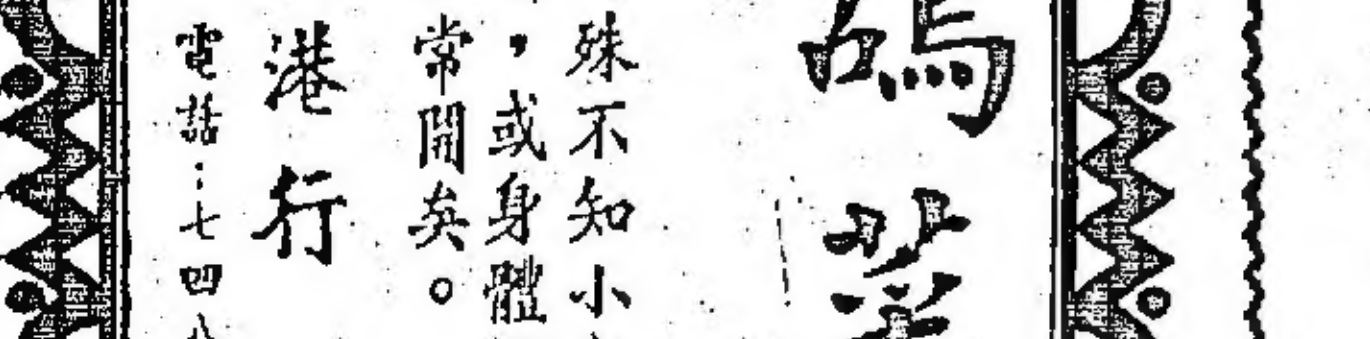 殊不知小
，或身體
常開矣。
港行
電話：七四八